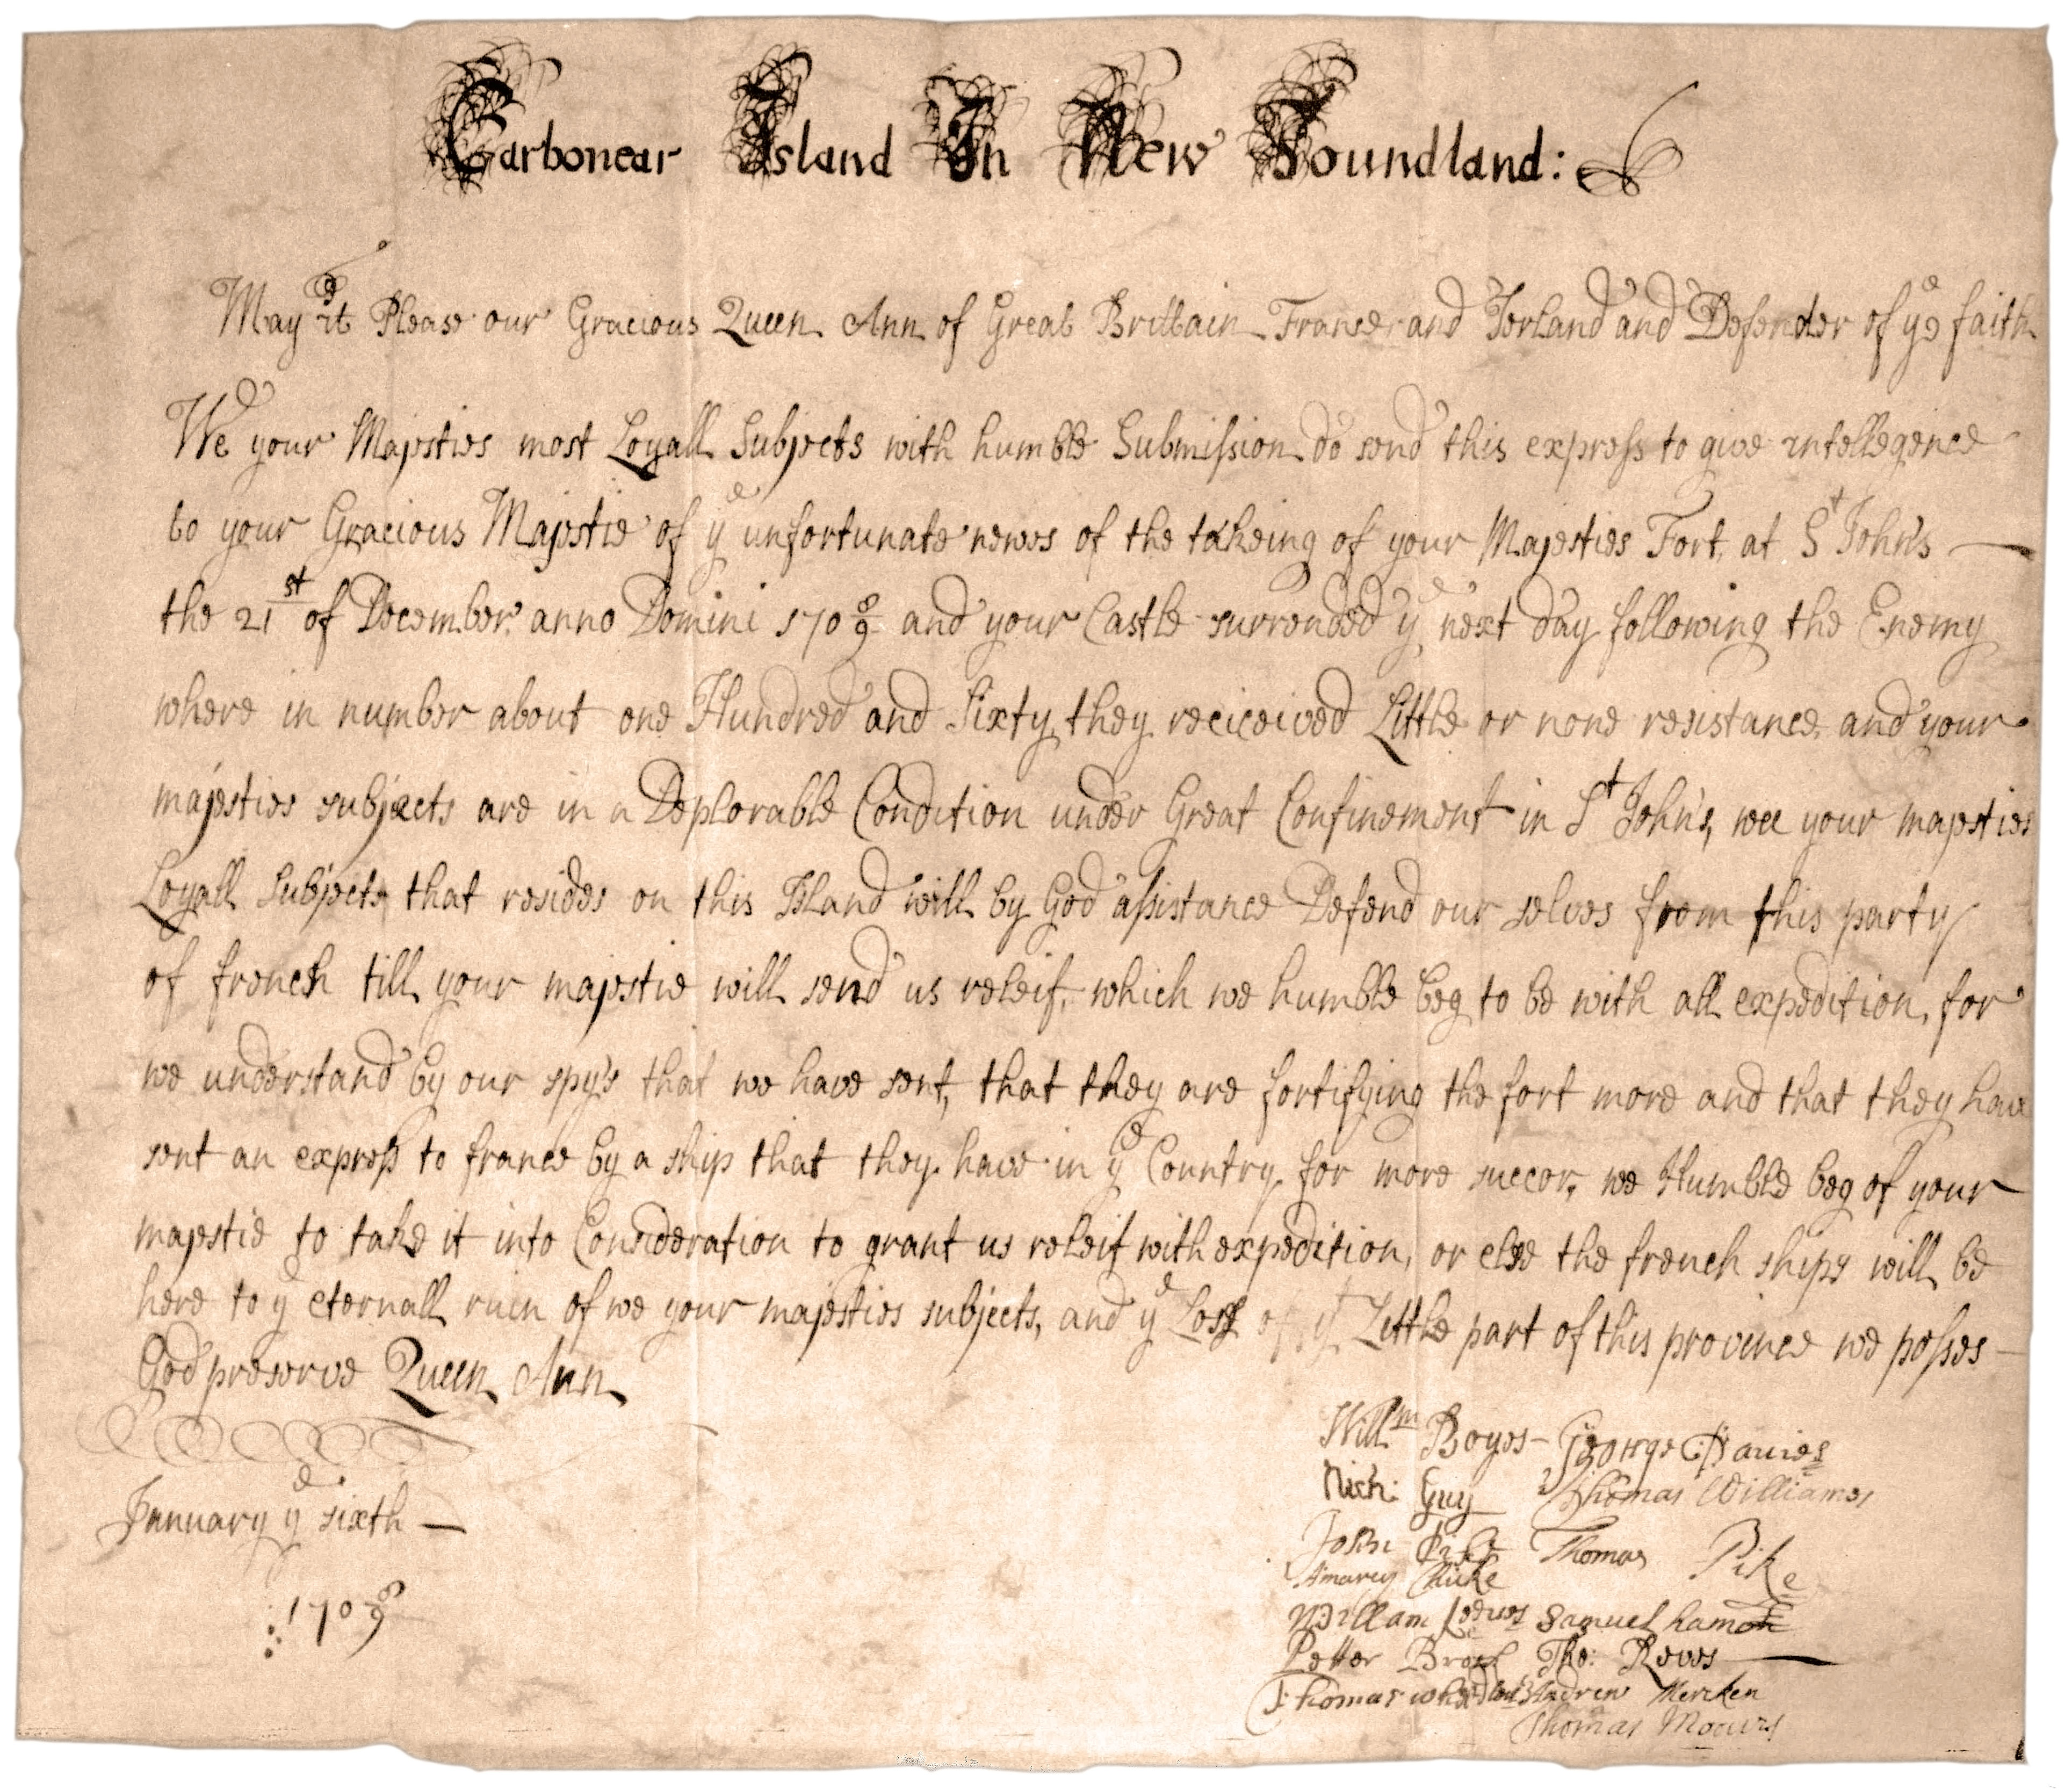 Carbonear Island In New Foundland:
May it Please our Gracious Queen Ann of Great Brittain France and Ierland and Defender of ye faith
We your Majesties most Loyall Subjects with humble Submission do send this express to give intellegence
to your Gracious Majestie of ye unfortunate newes of the takeing of your Majesties Fort at St John's
the 21st of December anno Domini 1708/9 and your Castle surrended ye next day following the Enemy
where in number about one Hundred and Sixty they reciceived Little or none resistance and your
majesties subjects are in a Deplorable Condition under Great Confinement in St John's, wee your majesties
Loyall Subjects that resides on this Island will by God assistance Defend our selves from this party
of french till your majestie will send us releif, which we humble beg to be with all expedition, for
we understand by our spy's that we have sent, that they are fortifying the fort more and that they have
sent an express to france by a ship that they have in ye Country for more succor, we Humble beg of your
majestie to take it into Consideration to grant us releif with expedition, or else the french ships will be
here to ye eternall ruin of we your majesties subjects, and ye Loss of yt Little part of this province we posses
God preserve Queen Ann
January ye sixth
1708/9
Willm Boyes George Davies
Nich: Guy Thomas Williames
John Thomas Pike
William Samuel
Petter Tho: Rewes
Thomas Andrew Mercken
Thomas